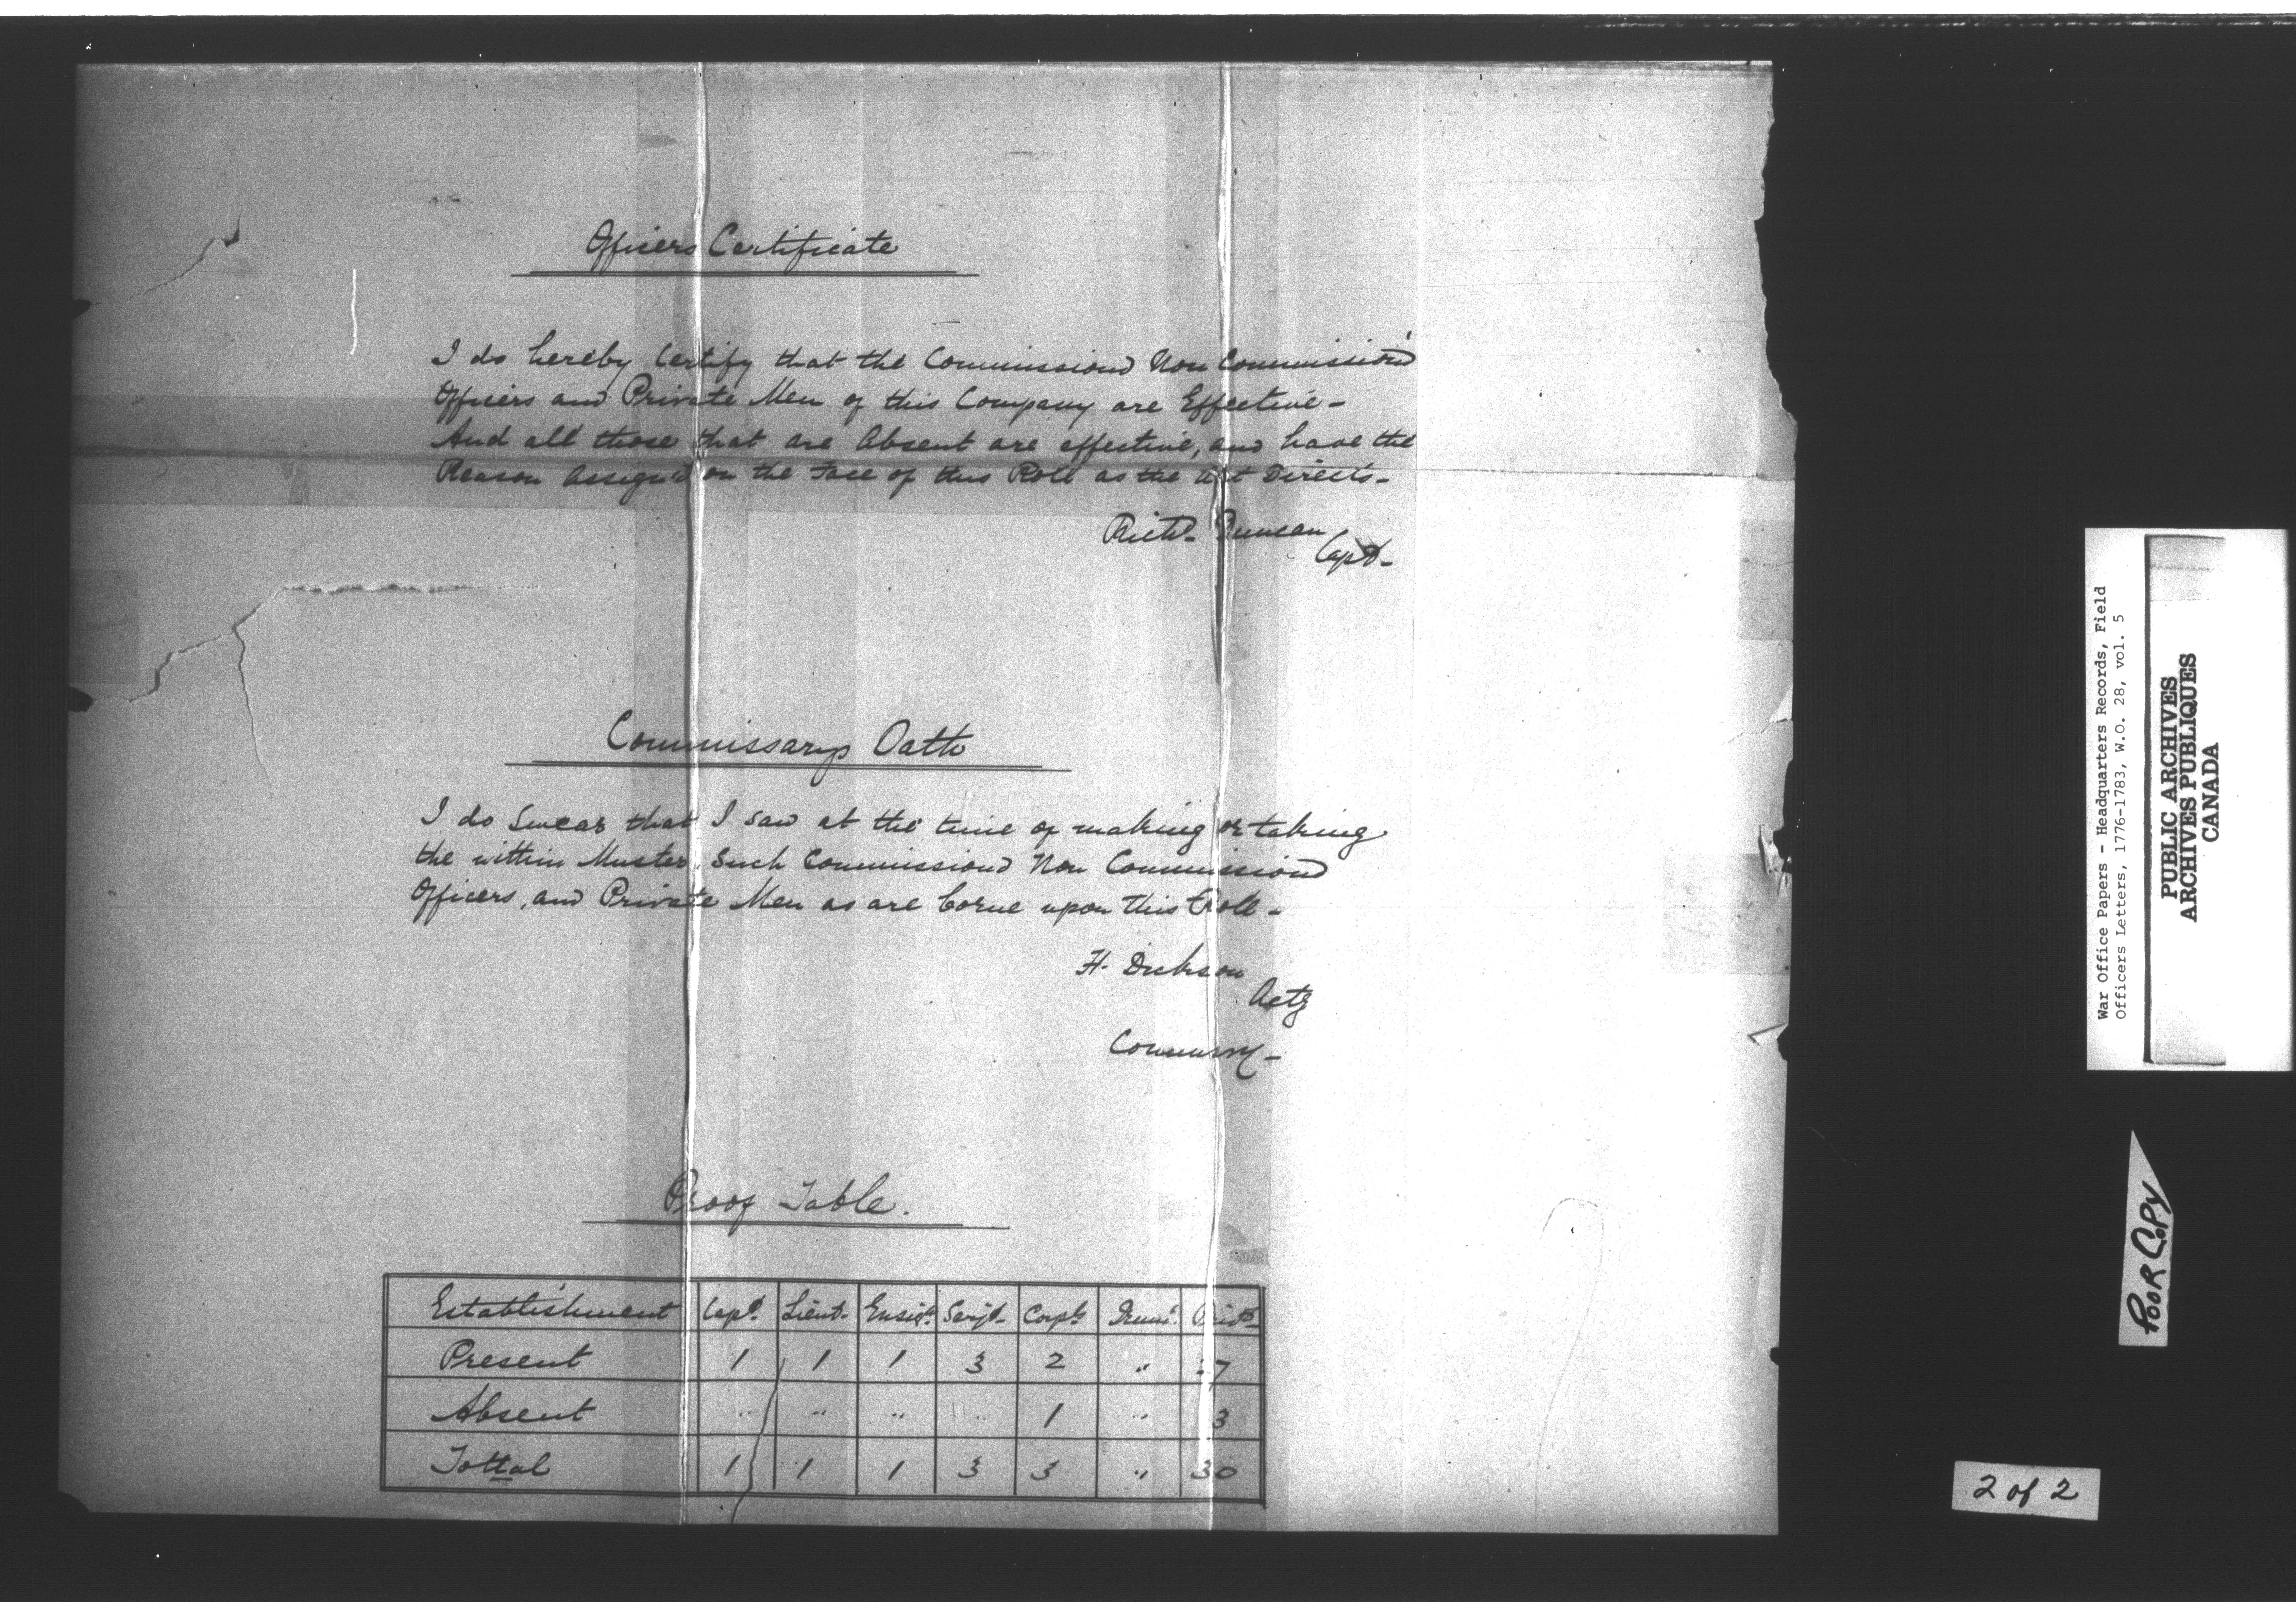 Officers Certificate
I do hereby Certify that the Commissiond Non Commission'd
Officers and Private Men of this Company are Effective-
And all those that are Absent are effective, and have the
Reason Assign'd on the Face of this Roll as the Act Directs-
Richd- Duncan
Capt-
Commissarys Oath
I do Swear that I saw at the time of making or taking
the within Muster, Such Commissiond Non Commissiond
Officers, and Private Men as are borne upon this Roll-
H. Dickson
Actg
Commissry-
Proof Table.
Establishment Capt. Lieut- Ensign. Serjt- Corpl. Drumr. Privts-
Present 1 1 1 3 2 " 27
Absent " " " " 1 " 3
Tottal 1 1 1 3 3 " 30
War Office Papers - Headquarters Records, Field
Officers Letters, 1776-1783, W.O. 28, vol. 5
PUBLIC ARCHIVES
ARCHIVES PUBLIQUES
CANADA
POOR COPY
2 of 2